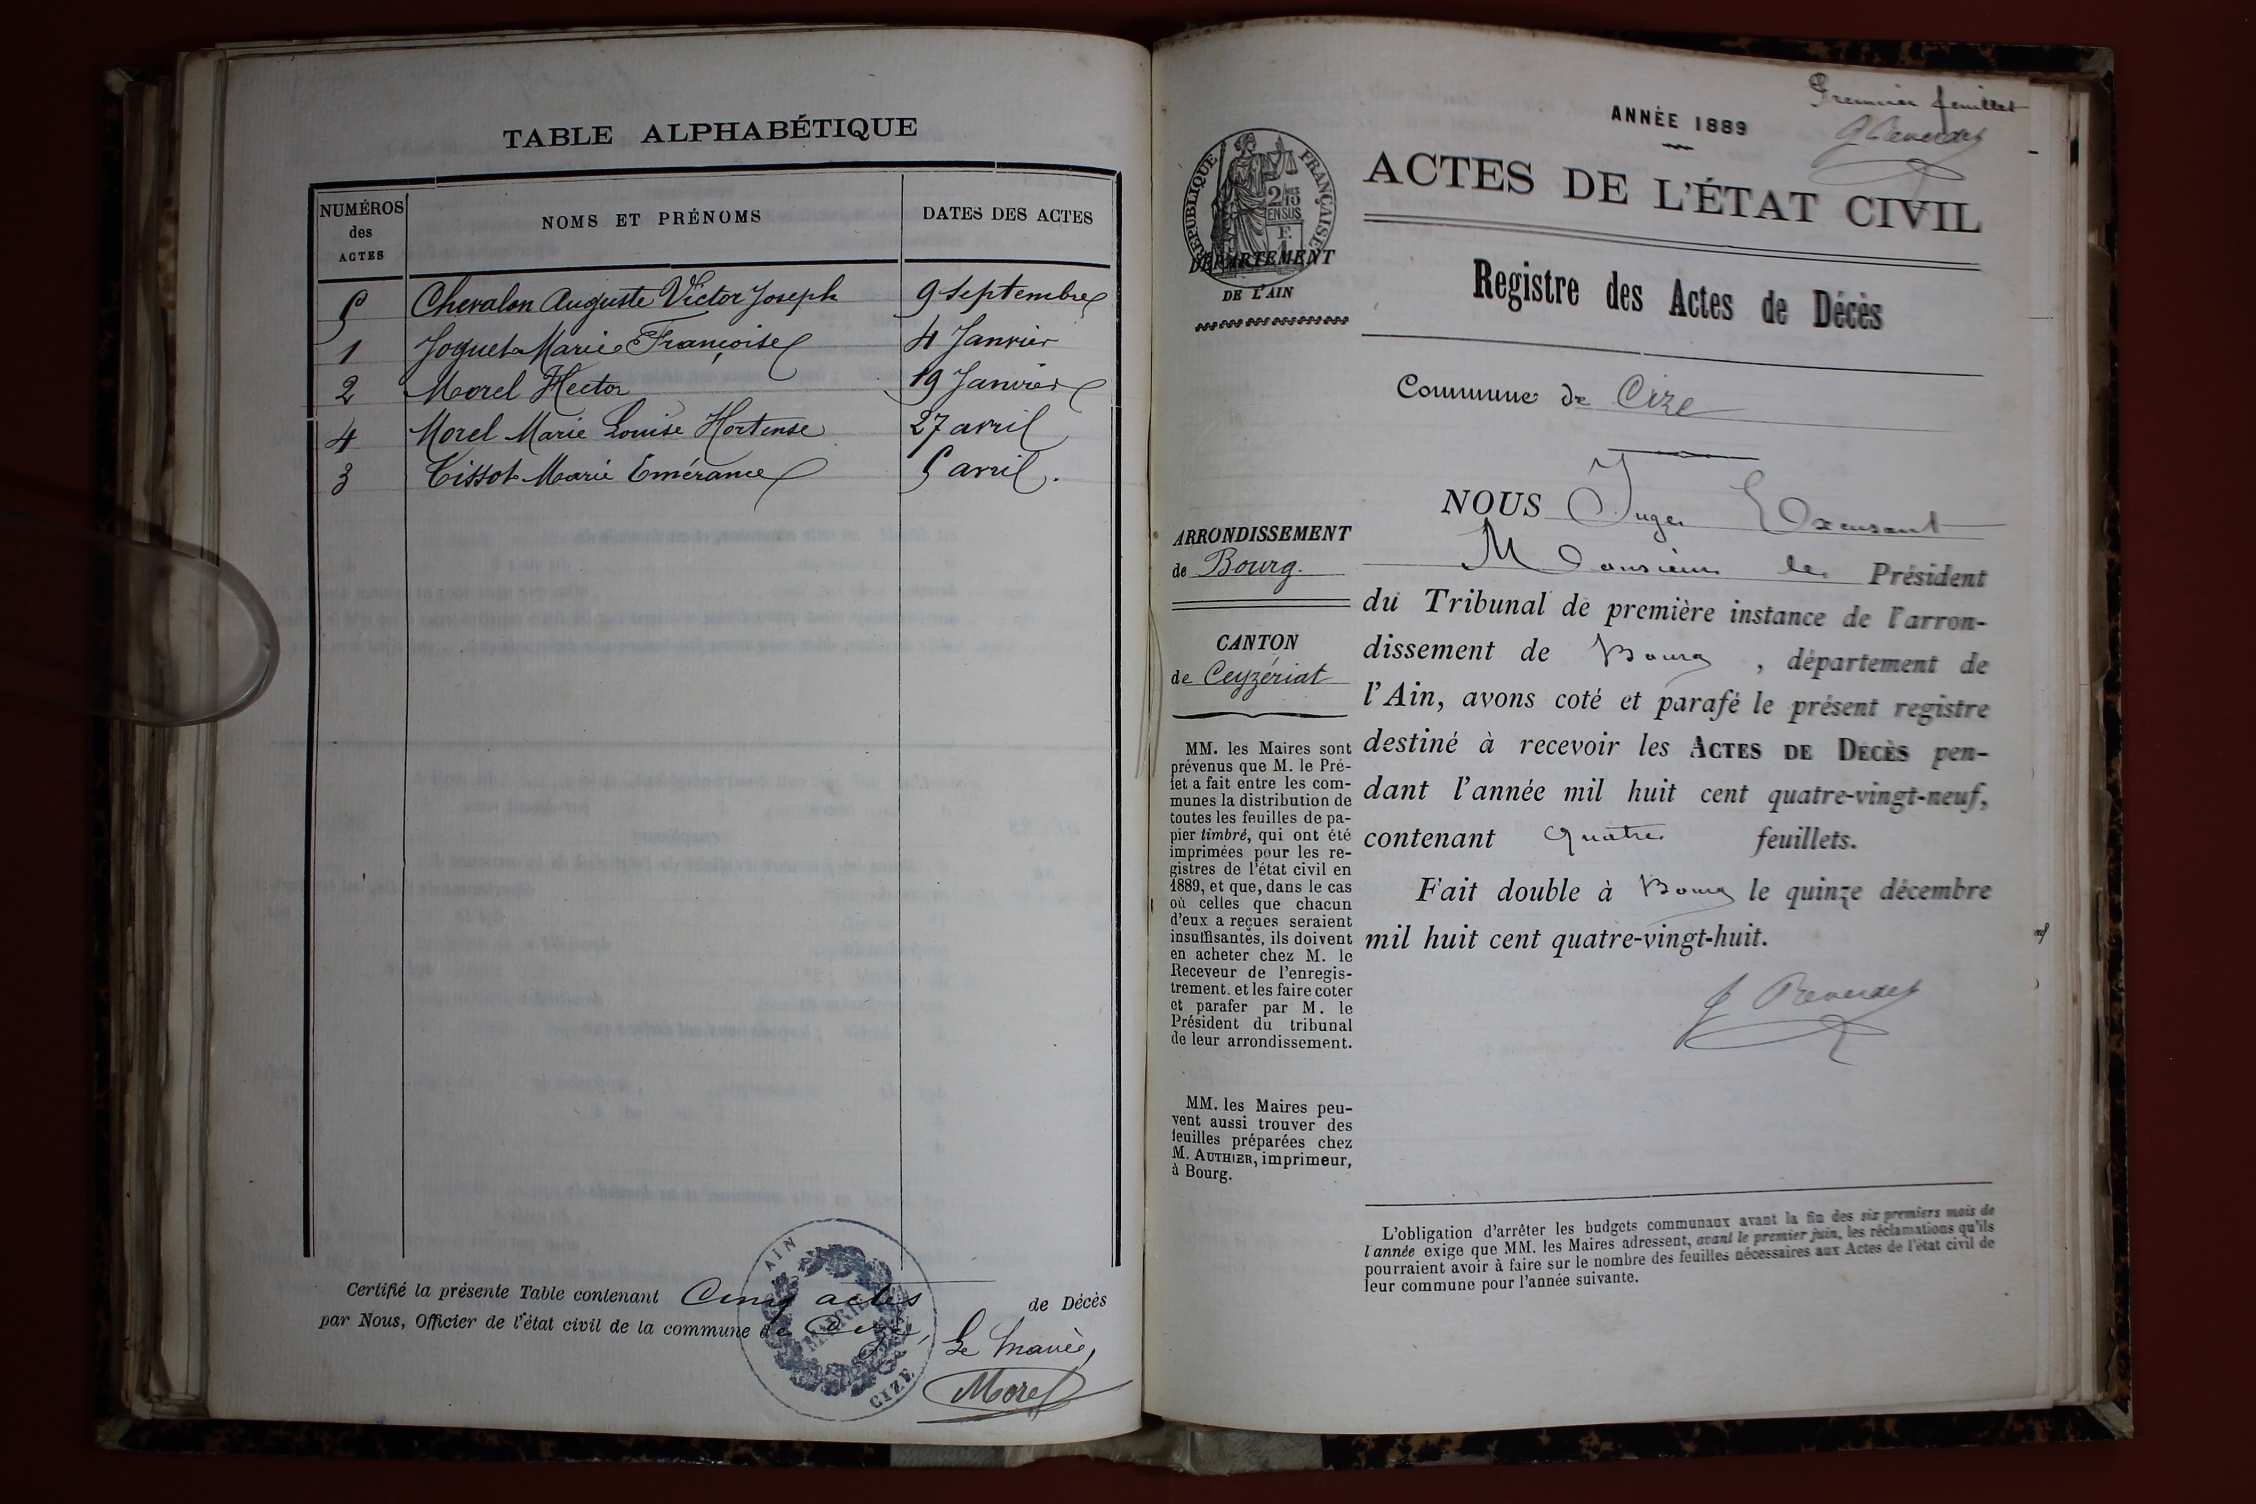 TABLE ALPHABÉTIQUE
NUMÉROS des ACTES
NOMS ET PRÉNOMS
DATES DES ACTES
5 Chevalon Auguste Victor Joseph 9 Septembre
1 Joguet Marie Françoise 4 Janvier
2 Morel Hector 19 Janvier
4 Morel Marie Louise Hortense 27 avril
3 Tissot Marie Emérance 5 avril.
Certifié la présente Table contenant Cinq actes de Décès
par Nous, Officier de l'état civil de la commune de Cize,
Le Maire,
Morel
AIN
MAIRIE
CIZE
Premier feuillet
J Reverdet
ANNÉE 1889
ACTES DE L'ÉTAT CIVIL
RÉPUBLIQUE FRANÇAISE
2/10 EN SUS
F. 1
DÉPARTEMENT
DE L'AIN
Registre des Actes de Décès
Commune de Cize
ARRONDISSEMENT
de Bourg.
CANTON
de Ceyzériat
MM. les Maires sont
prévenus que M. le Pré-
fet a fait entre les com-
munes la distribution de
toutes les feuilles de pa-
pier timbré, qui ont été
imprimées pour les re-
gistres de l'état civil en
1889, et que, dans le cas
où celles que chacun
d'eux a reçues seraient
insuffisantes, ils doivent
en acheter chez M. le
Receveur de l'enregis-
trement. et les faire coter
et parafer par M. le
Président du tribunal
de leur arrondissement.
MM. les Maires peu-
vent aussi trouver des
feuilles préparées chez
M. AUTHIER, imprimeur,
à Bourg.
NOUS Juge Excusant
Monsieur le Président
du Tribunal de première instance de l'arron-
dissement de Bourg, département de
l'Ain, avons coté et parafé le présent registre
destiné à recevoir les ACTES DE DÉCÈS pen-
dant l'année mil huit cent quatre-vingt-neuf,
contenant quatre feuillets.
Fait double à Bourg le quinze décembre
mil huit cent quatre-vingt-huit.
J Reverdet
L'obligation d'arrêter les budgets communaux avant la fin des six premiers mois de
l'année exige que MM. les Maires adressent, avant le premier juin, les réclamations qu'ils
pourraient avoir à faire sur le nombre des feuilles nécessaires aux Actes de l'état civil de
leur commune pour l'année suivante.